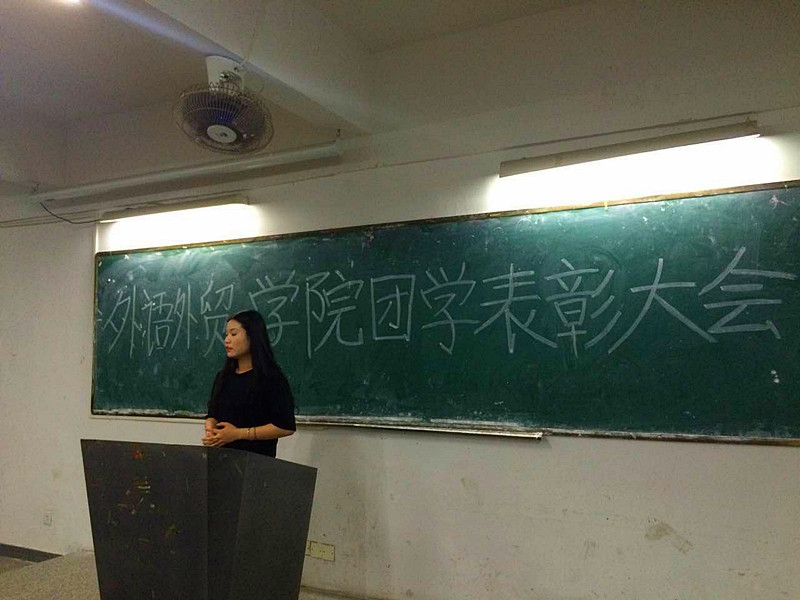 外語外贸学院团学表彰大会